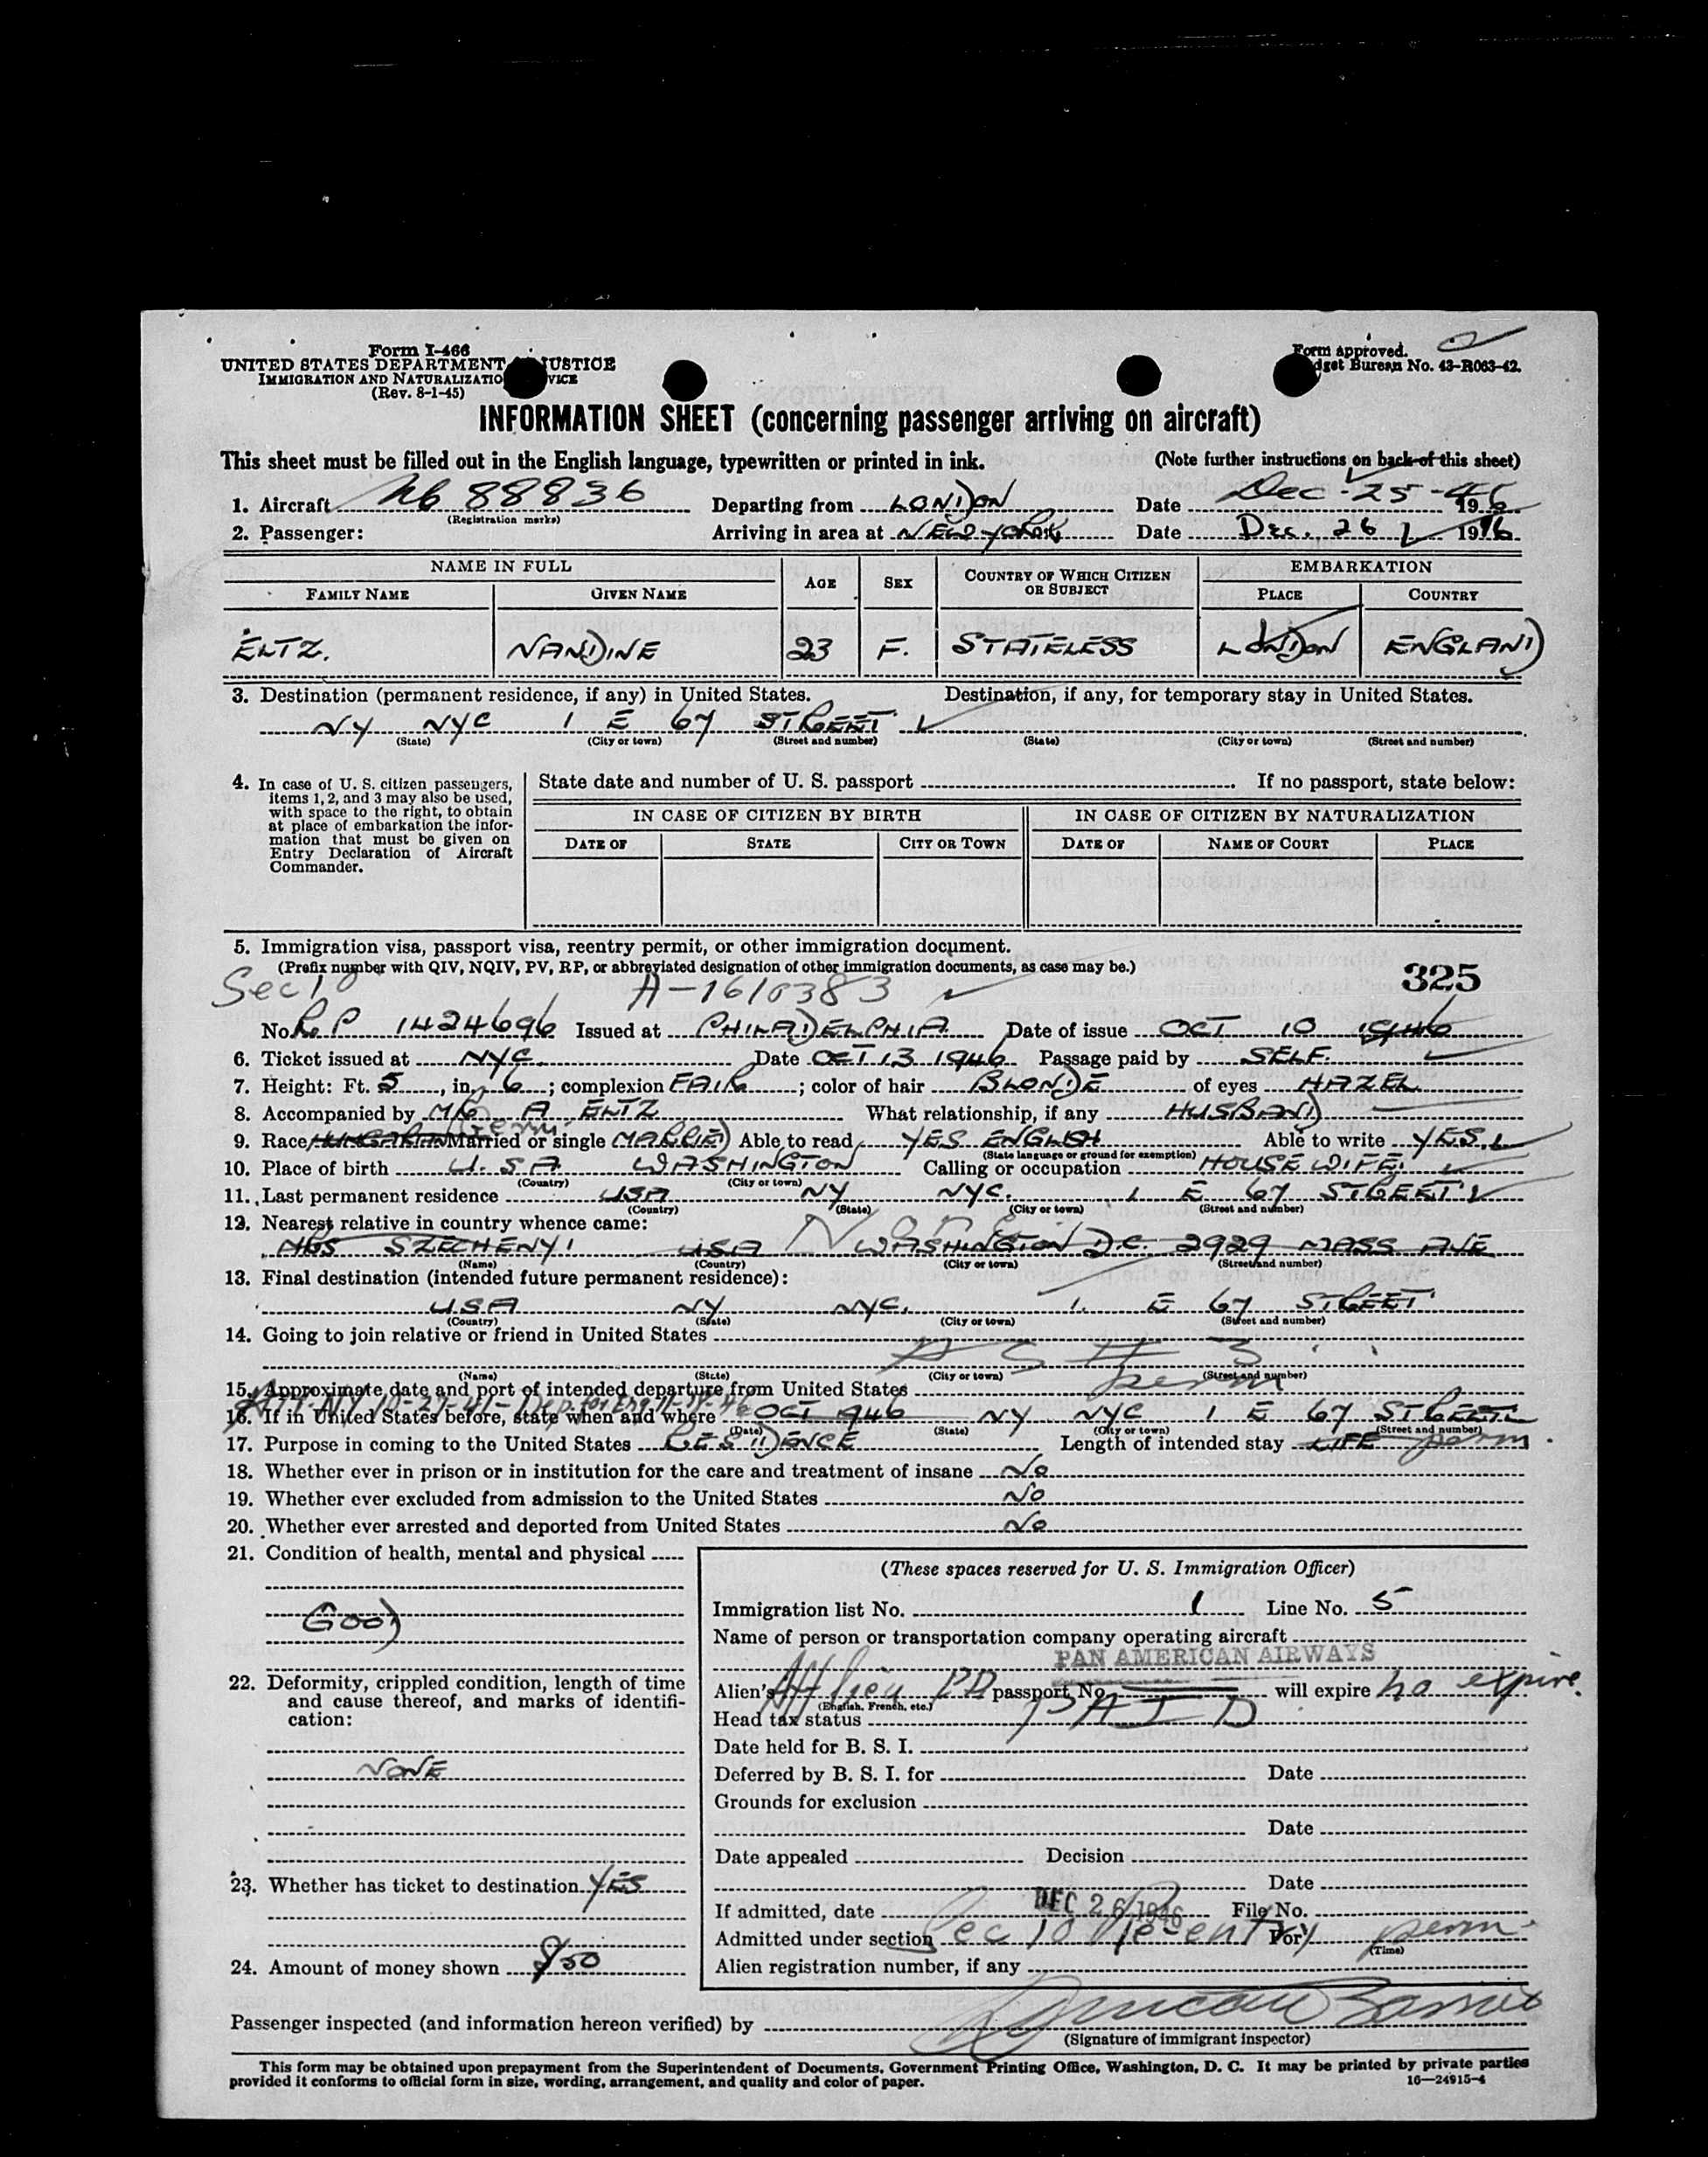 Form I-466
UNITED STATES DEPARTMENT JUSTICE
IMMIGRATION AND NATURALIZATIO VICE
(Rev. 8-1-45)
Form approved.
dget Bureau No. 43-R063-42.
INFORMATION SHEET (concerning passenger arriving on aircraft)
This sheet must be filled out in the English language, typewritten or printed in ink. (Note further instructions on back of this sheet)
1. Aircraft Nc 88836 Departing from LONDON Date Dec-25-46 1946
(Registration marks)
2. Passenger: Arriving in area at NEW YORK Date Dec. 26 1946
NAME IN FULL AGE SEX COUNTRY OF WHICH CITIZEN OR SUBJECT EMBARKATION
FAMILY NAME GIVEN NAME PLACE COUNTRY
ELTZ. NANDINE 23 F. STATELESS LONDON ENGLAND
3. Destination (permanent residence, if any) in United States. Destination, if any, for temporary stay in United States.
NY NYC 1 E 67 STREET
(State) (City or town) (Street and number) (State) (City or town) (Street and number)
4. In case of U. S. citizen passengers, items 1, 2, and 3 may also be used, with space to the right, to obtain at place of embarkation the information that must be given on Entry Declaration of Aircraft Commander.
State date and number of U. S. passport If no passport, state below:
IN CASE OF CITIZEN BY BIRTH IN CASE OF CITIZEN BY NATURALIZATION
DATE OF STATE CITY OR TOWN DATE OF NAME OF COURT PLACE
5. Immigration visa, passport visa, reentry permit, or other immigration document.
(Prefix number with QIV, NQIV, PV, RP, or abbreviated designation of other immigration documents, as case may be.) 325
Sec 10 A-1610383
No. RP 1424696 Issued at PHILADELPHIA Date of issue OCT 10 1946
6. Ticket issued at NYC Date OCT 13 1946 Passage paid by SELF.
7. Height: Ft. 5, in. 6; complexion FAIR; color of hair BLONDE of eyes HAZEL
8. Accompanied by MR A ELTZ What relationship, if any HUSBAND
Germ.
9. Race HUNGARIAN Married or single MARRIED Able to read YES ENGLISH Able to write YES.
(State language or ground for exemption)
10. Place of birth U.S.A. WASHINGTON Calling or occupation HOUSEWIFE.
(Country) (City or town)
11. Last permanent residence USA NY NYC. 1 E 67 STREET
(Country) (State) (City or town) (Street and number)
12. Nearest relative in country whence came: None
SZECHENYI USA WASHINGTON D.C. 2929 MASS AVE
(Name) (Country) (City or town) (Street and number)
13. Final destination (intended future permanent residence):
USA NY NYC. 1. E 67 STREET
(Country) (State) (City or town) (Street and number)
14. Going to join relative or friend in United States
AS # 3
(Name) (State) (City or town) (Street and number)
15. Approximate date and port of intended departure from United States perm
Arr. NY 10-27-41- Dep. for Eng 11-14-46
16. If in United States before, state when and where OCT 1946 NY NYC 1 E 67 STREET
(Date) (State) (City or town) (Street and number)
17. Purpose in coming to the United States RESIDENCE Length of intended stay LIFE perm.
18. Whether ever in prison or in institution for the care and treatment of insane No
19. Whether ever excluded from admission to the United States No
20. Whether ever arrested and deported from United States No
21. Condition of health, mental and physical
GOOD
22. Deformity, crippled condition, length of time and cause thereof, and marks of identification:
NONE
23. Whether has ticket to destination YES
24. Amount of money shown $50
(These spaces reserved for U. S. Immigration Officer)
Immigration list No. 1 Line No. 5
Name of person or transportation company operating aircraft
PAN AMERICAN AIRWAYS
Alien's passport No. will expire no expire.
(English, French, etc.)
Head tax status PAID
Date held for B. S. I.
Deferred by B. S. I. for Date
Grounds for exclusion
Date
Date appealed Decision
Date
If admitted, date DEC 26 1946 File No.
Admitted under section Sec 10 For perm.
(Time)
Alien registration number, if any
Passenger inspected (and information hereon verified) by
(Signature of immigrant inspector)
This form may be obtained upon prepayment from the Superintendent of Documents, Government Printing Office, Washington, D. C. It may be printed by private parties
provided it conforms to official form in size, wording, arrangement, and quality and color of paper. 16—24915-4